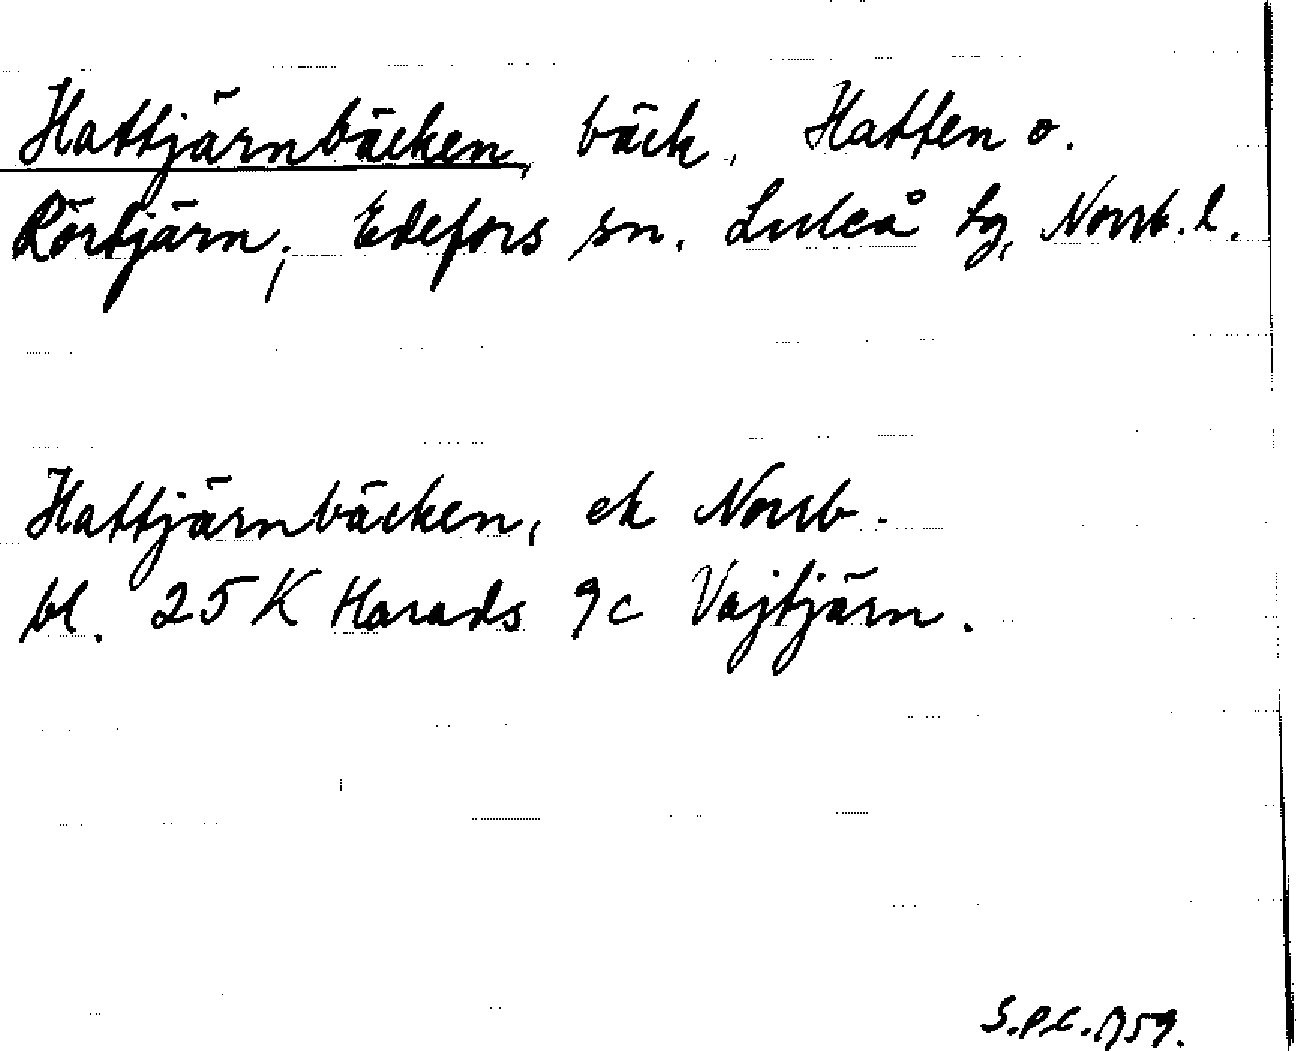 Hattjärnbäcken, bäck, Hatten o.
Rörtjärn, Edefors sn, Luleå tg, Norrb. l.
Hattjärnbäcken, ek Norrb.
bl. 25 K Harads 9c Vajtjärn.